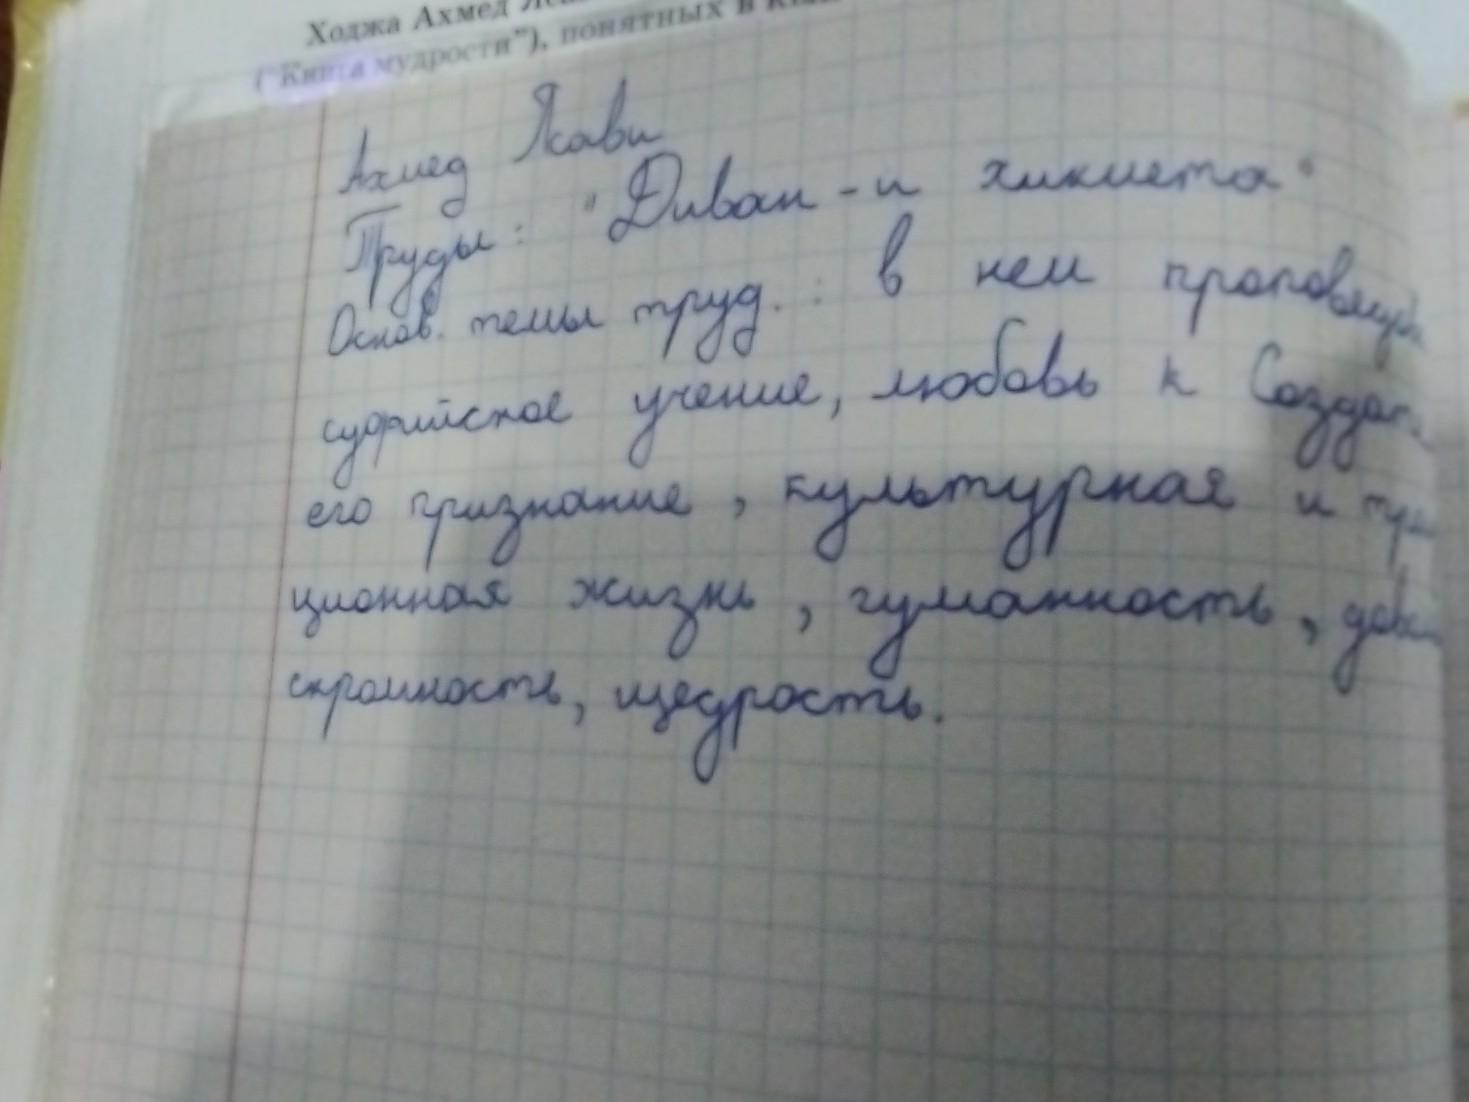 Ходжа Ахмед
("Книга мудрости"), понятных в
Ахмед Ясави
Труды: "Диван-и хикмета"
Основ. темы труд.: в нем
суфийское учение, любовь к
его признание, культурная и
ционная жизнь, гуманность,
скромность, щедрость.